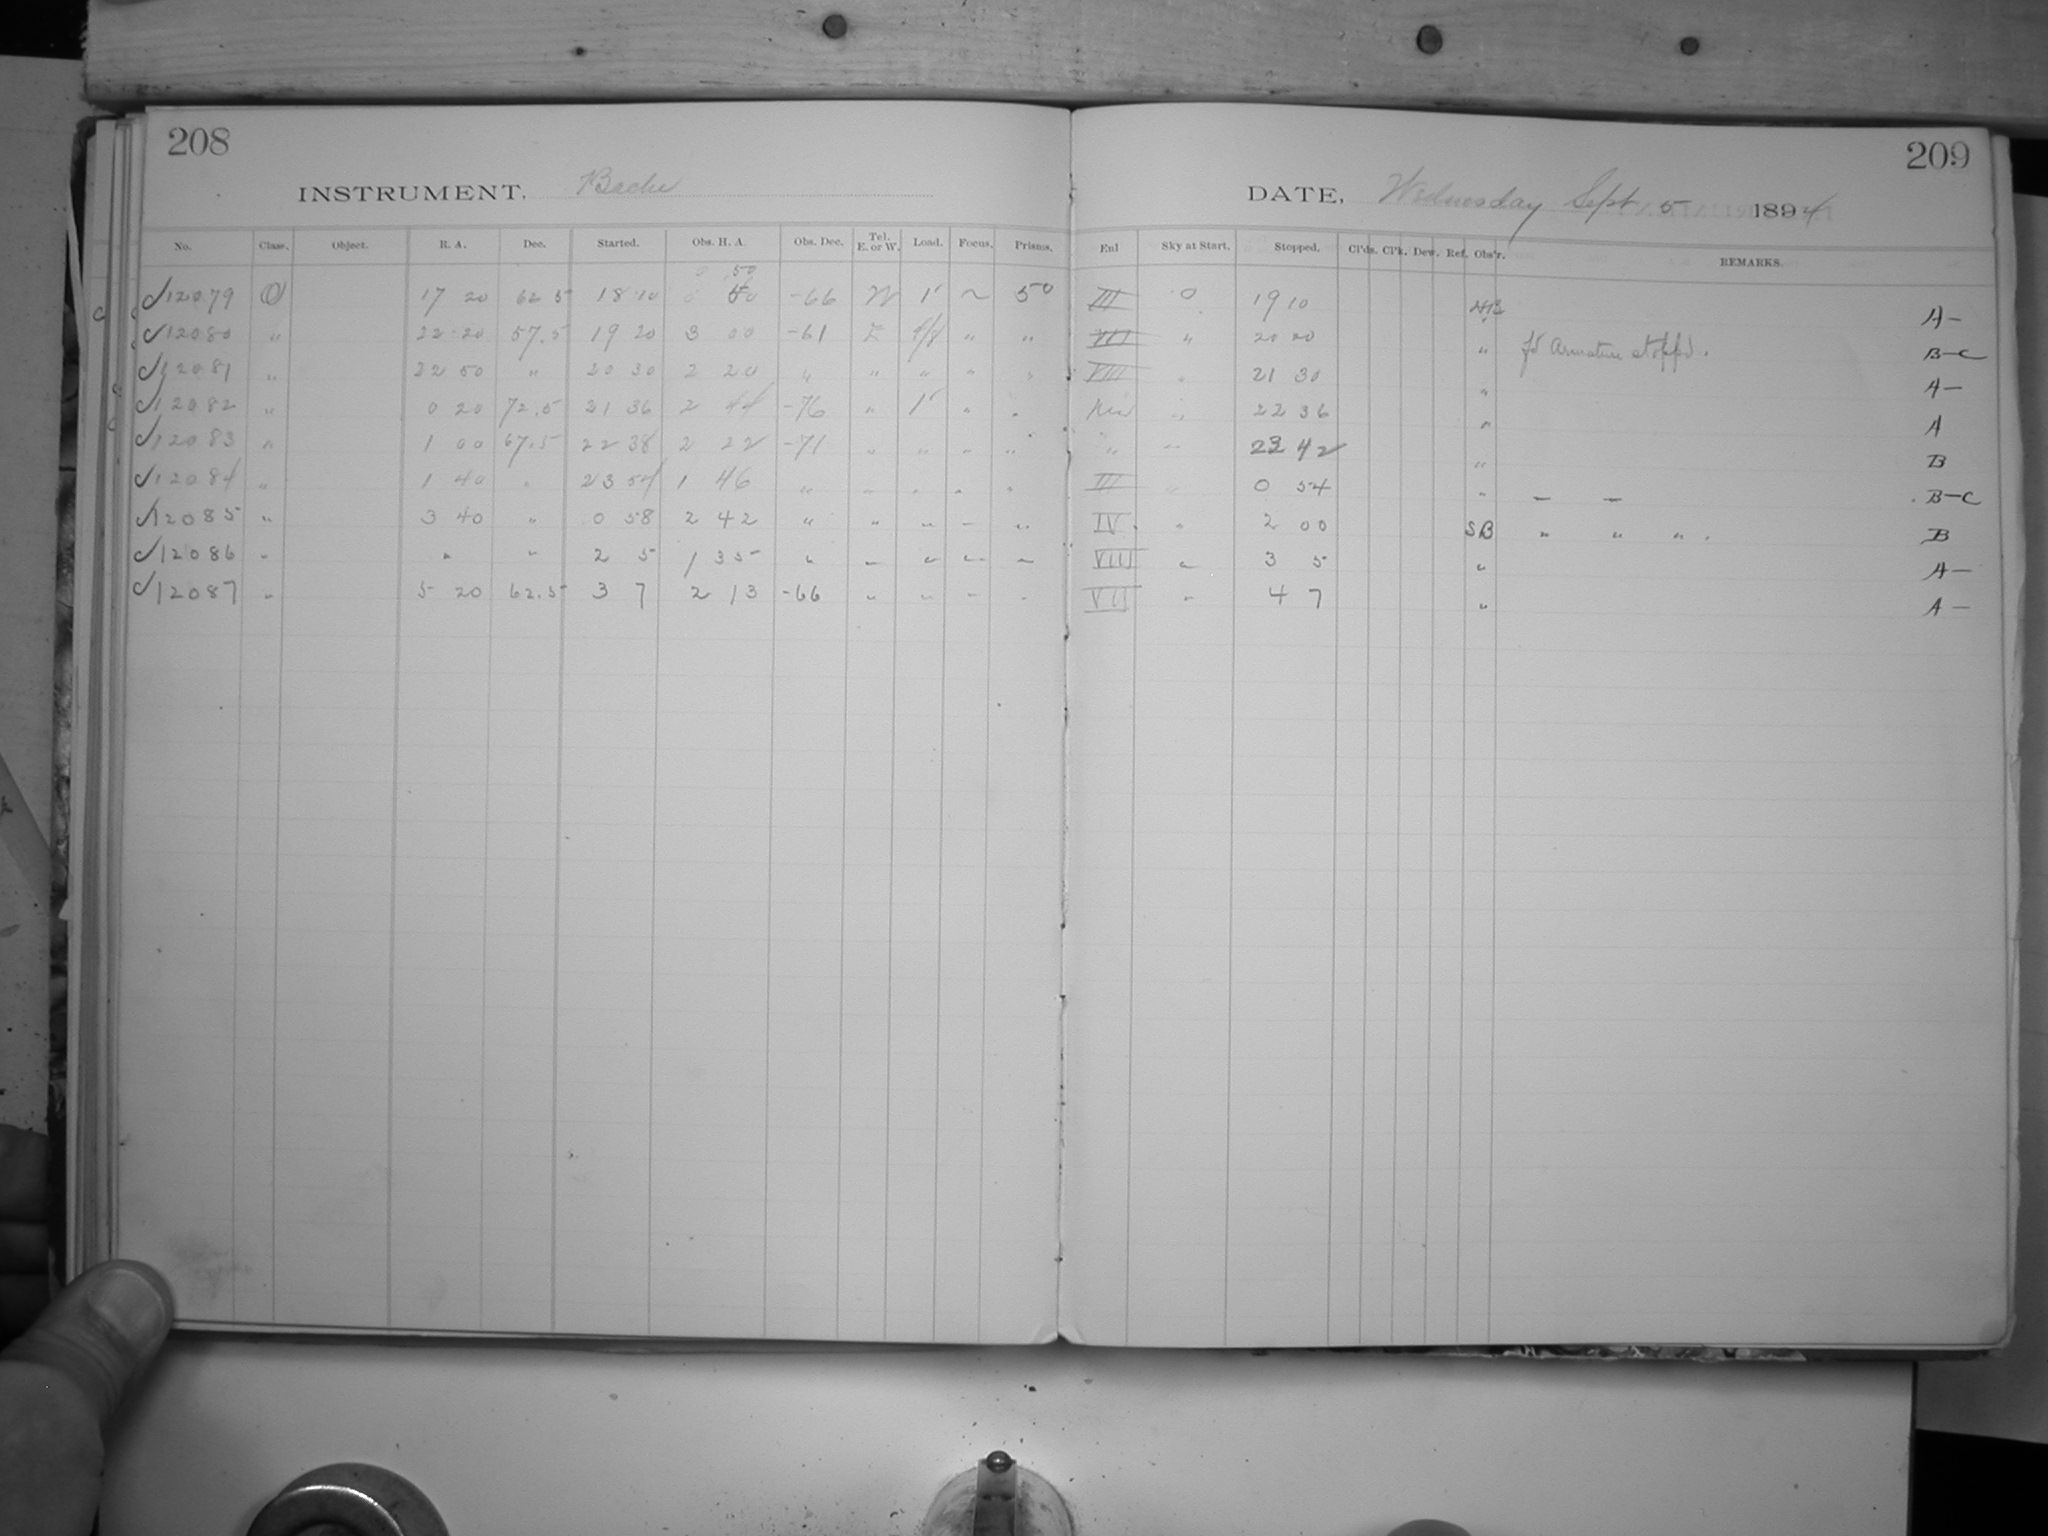 208
INSTRUMENT, Bache
No. Class. Object. R. A. Dec. Started. Obs. H. A. Obs. Dec. Tel. E. or W. Load. Focus. Prisms.
0 50
√12079 O 17 20 62 5 18 10 0 50 -66 W 1' ~ 50
√12080 " 22 20 57.5 19 20 3 00 -61 E " "
√12081 " 22 50 " 20 30 2 20 " " " " "
√12082 " 0 20 72.5 21 36 2 44 -76 " 1' " "
√12083 " 1 00 67.5 22 38 2 22 -71 " " " "
√12084 " 1 40 " 23 54 1 46 " " " " "
√12085 " 3 40 " 0 58 2 42 " " " " "
√12086 " " " 2 5 1 35 " " " " "
√12087 " 5 20 62.5 3 7 2 13 -66 " " " "
209
DATE, Wednesday Sept 5 1894
Enl Sky at Start. Stopped. Cl'ds. Cl'k. Dew. Ref. Obs'r. REMARKS.
III O 19 10 A-
VIII " 20 20 " Armature stopped. B-C
VIII " 21 30 " A-
" 22 36 " A
" " 23 42 " B
III " 0 54 " — — B-C
IV " 2 00 SB " " " . B
VIII " 3 5 " A-
VII " 4 7 " A-